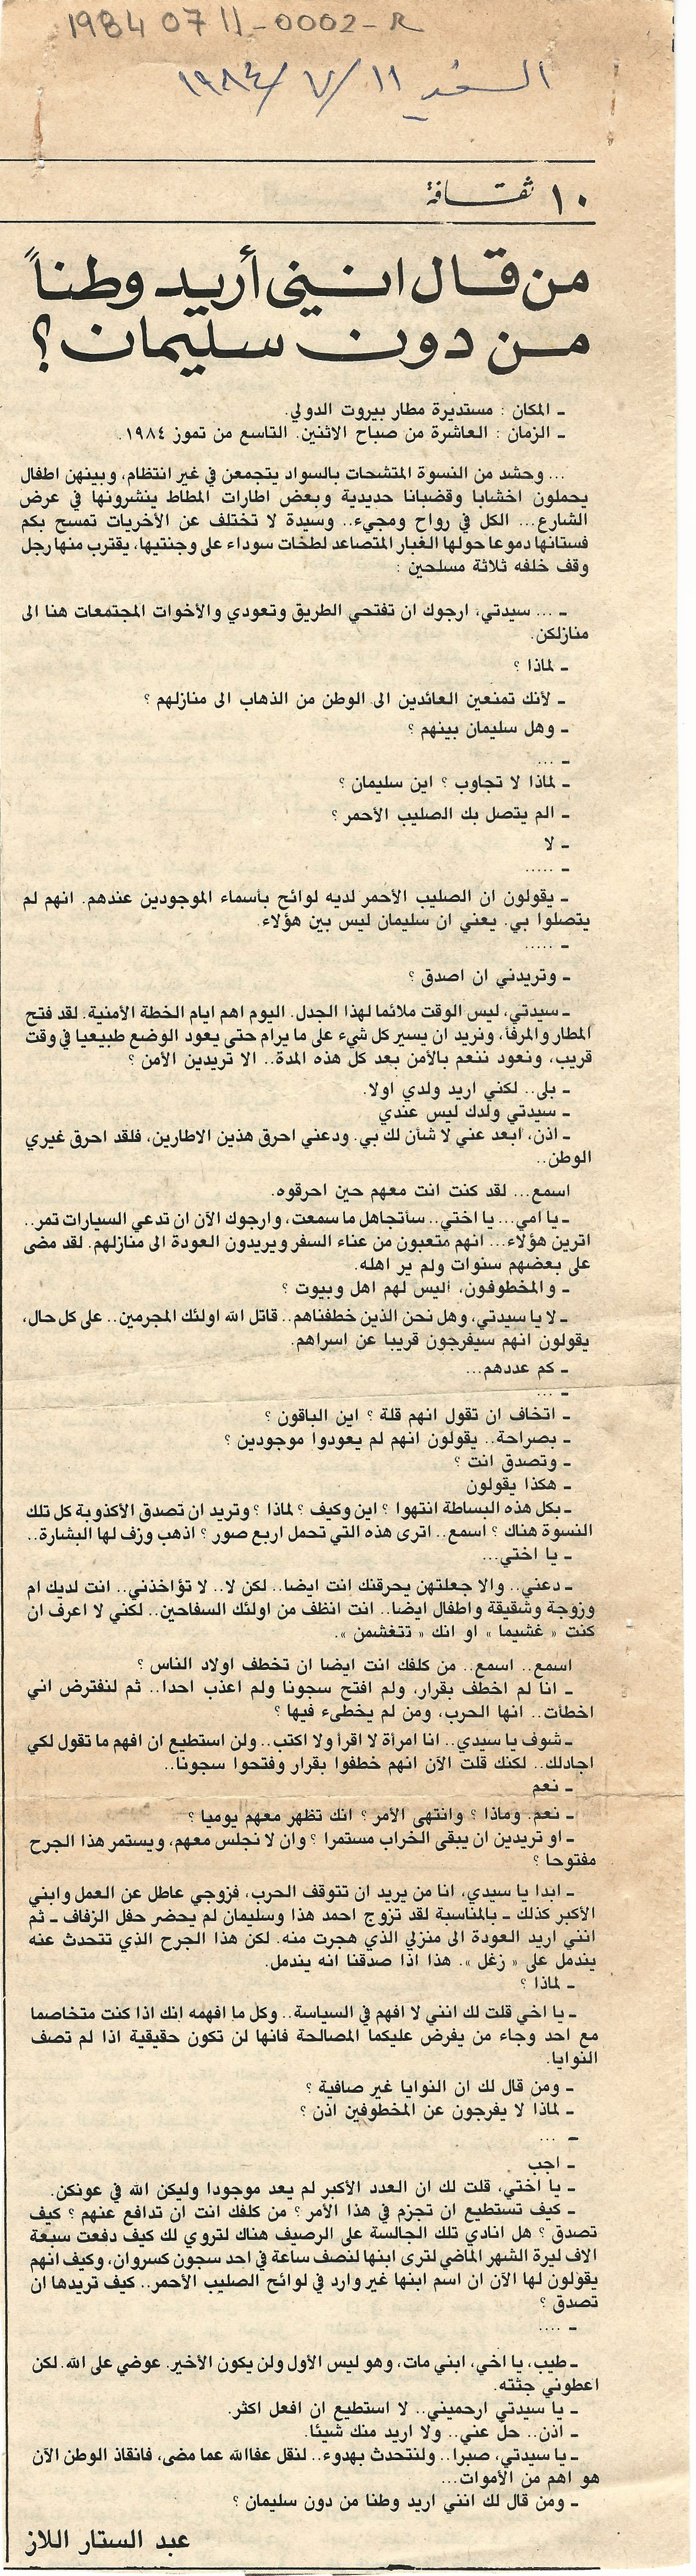 1984 07 11-0002-R
السفير ١١/٧/١٩٨٤
١٠ ثقافة
من قال انني أريد وطناً
من دون سليمان؟
ـ المكان : مستديرة مطار بيروت الدولي.
ـ الزمان : العاشرة من صباح الاثنين. التاسع من تموز ١٩٨٤.
... وحشد من النسوة المتشحات بالسواد يتجمعن في غير انتظام، وبينهن اطفال
يحملون اخشابا وقضبانا حديدية وبعض اطارات المطاط ينشرونها في عرض
الشارع... الكل في رواح ومجيء.. وسيدة لا تختلف عن الأخريات تمسح بكم
فستانها دموعا حولها الغبار المتصاعد لطخات سوداء على وجنتيها، يقترب منها رجل
وقف خلفه ثلاثة مسلحين :
ـ ... سيدتي، ارجوك ان تفتحي الطريق وتعودي والأخوات المجتمعات هنا الى
منازلكن.
ـ لماذا ؟
ـ لأنك تمنعين العائدين الى الوطن من الذهاب الى منازلهم ؟
ـ وهل سليمان بينهم ؟
ـ ...
ـ لماذا لا تجاوب ؟ اين سليمان ؟
ـ الم يتصل بك الصليب الأحمر ؟
ـ لا
ـ .....
ـ يقولون ان الصليب الأحمر لديه لوائح بأسماء الموجودين عندهم. انهم لم
يتصلوا بي. يعني ان سليمان ليس بين هؤلاء.
ـ .....
ـ وتريدني ان اصدق ؟
ـ سيدتي، ليس الوقت ملائما لهذا الجدل. اليوم اهم ايام الخطة الأمنية. لقد فتح
المطار والمرفأ، ونريد ان يسير كل شيء على ما يرام حتى يعود الوضع طبيعيا في وقت
قريب، ونعود ننعم بالأمن بعد كل هذه المدة.. الا تريدين الأمن ؟
ـ بلى.. لكني اريد ولدي اولا.
ـ سيدتي ولدك ليس عندي
ـ اذن، ابعد عني لا شأن لك بي. ودعني احرق هذين الاطارين، فلقد احرق غيري
الوطن..
اسمع... لقد كنت انت معهم حين احرقوه.
ـ يا امي... يا اختي.. سأتجاهل ما سمعت، وارجوك الآن ان تدعي السيارات تمر..
اترين هؤلاء... انهم متعبون من عناء السفر ويريدون العودة الى منازلهم. لقد مضى
على بعضهم سنوات ولم ير اهله.
ـ والمخطوفون، اليس لهم اهل وبيوت ؟
ـ لا يا سيدتي، وهل نحن الذين خطفناهم.. قاتل الله اولئك المجرمين.. على كل حال،
يقولون انهم سيفرجون قريبا عن اسراهم.
ـ كم عددهم...
ـ ...
ـ اتخاف ان تقول انهم قلة ؟ اين الباقون ؟
ـ بصراحة.. يقولون انهم لم يعودوا موجودين ؟
ـ وتصدق انت ؟
ـ هكذا يقولون
ـ بكل هذه البساطة انتهوا ؟ اين وكيف ؟ لماذا ؟ وتريد ان تصدق الأكذوبة كل تلك
النسوة هناك ؟ اسمع.. اترى هذه التي تحمل اربع صور ؟ اذهب وزف لها البشارة..
ـ يا اختي...
ـ دعني.. والا جعلتهن يحرقنك انت ايضا.. لكن لا.. لا تؤاخذني.. انت لديك ام
وزوجة وشقيقة واطفال ايضا.. انت انظف من اولئك السفاحين.. لكني لا اعرف ان
كنت « غشيما » او انك « تتغشمن ».
اسمع.. اسمع.. من كلفك انت ايضا ان تخطف اولاد الناس ؟
ـ انا لم اخطف بقرار، ولم افتح سجونا ولم اعذب احدا.. ثم لنفترض اني
اخطأت.. انها الحرب، ومن لم يخطىء فيها ؟
ـ شوف يا سيدي.. انا امرأة لا اقرأ ولا اكتب.. ولن استطيع ان افهم ما تقول لكي
اجادلك.. لكنك قلت الآن انهم خطفوا بقرار وفتحوا سجونا..
ـ نعم
ـ نعم. وماذا ؟ وانتهى الأمر ؟ انك تظهر معهم يوميا ؟
ـ او تريدين ان يبقى الخراب مستمرا ؟ وان لا نجلس معهم، ويستمر هذا الجرح
مفتوحا ؟
ـ ابدا يا سيدي، انا من يريد ان تتوقف الحرب، فزوجي عاطل عن العمل وابني
الأكبر كذلك ـ بالمناسبة لقد تزوج احمد هذا وسليمان لم يحضر حفل الزفاف ـ ثم
انني اريد العودة الى منزلي الذي هجرت منه. لكن هذا الجرح الذي تتحدث عنه
يندمل على « زغل ». هذا اذا صدقنا انه يندمل.
ـ لماذا ؟
ـ يا اخي قلت لك انني لا افهم في السياسة.. وكل ما افهمه انك اذا كنت متخاصما
مع احد وجاء من يفرض عليكما المصالحة فانها لن تكون حقيقية اذا لم تصف
النوايا.
ـ ومن قال لك ان النوايا غير صافية ؟
ـ لماذا لا يفرجون عن المخطوفين اذن ؟
ـ ...
ـ اجب
ـ يا اختي، قلت لك ان العدد الأكبر لم يعد موجودا وليكن الله في عونكن.
ـ كيف تستطيع ان تجزم في هذا الأمر ؟ من كلفك انت ان تدافع عنهم ؟ كيف
تصدق ؟ هل انادي تلك الجالسة على الرصيف هناك لتروي لك كيف دفعت سبعة
الاف ليرة الشهر الماضي لترى ابنها لنصف ساعة في احد سجون كسروان، وكيف انهم
يقولون لها الآن ان اسم ابنها غير وارد في لوائح الصليب الأحمر.. كيف تريدها ان
تصدق ؟
ـ ....
ـ طيب، يا اخي، ابني مات، وهو ليس الأول ولن يكون الأخير. عوضي على الله. لكن
اعطوني جثته.
ـ يا سيدتي ارحميني.. لا استطيع ان افعل اكثر.
ـ اذن.. حل عني.. ولا اريد منك شيئا.
ـ يا سيدتي، صبرا.. ولنتحدث بهدوء.. لنقل عفا الله عما مضى، فانقاذ الوطن الآن
هو اهم من الأموات...
ـ ومن قال لك انني اريد وطنا من دون سليمان ؟
عبد الستار اللاز